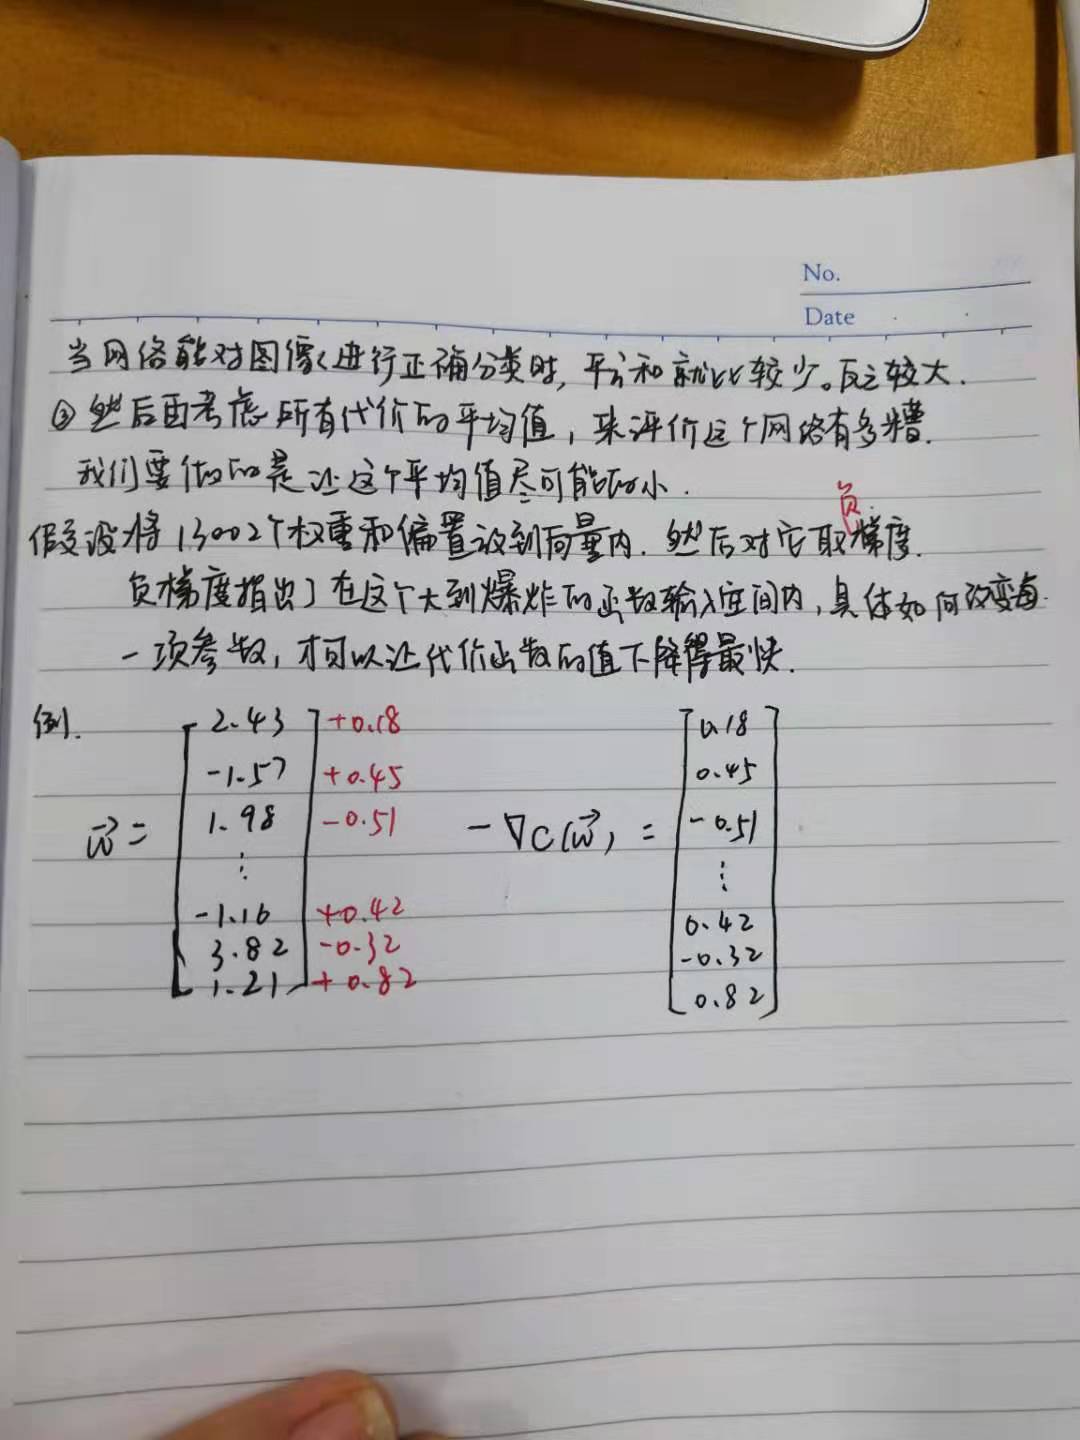 No.
Date
当网络能对图像进行正确分类时,平方和就比较少。反之较大.
③ 然后再考虑所有代价的平均值,来评价这个网络有多糟.
我们要做的是让这个平均值尽可能的小.
负
假设将13002个权重和偏置放到向量内.然后对它取梯度.
负梯度指出了在这个大到爆炸的函数输入空间内,具体如何改变每
一项参数,才可以让代价函数的值下降得最快.
例.
2.43 +0.18 0.18
-1.57 +0.45 0.45
1.98 -0.51 -0.51
w⃗ = ⋮ -∇C(w⃗) = ⋮
-1.16 +0.42 0.42
3.82 -0.32 -0.32
1.21 +0.82 0.82